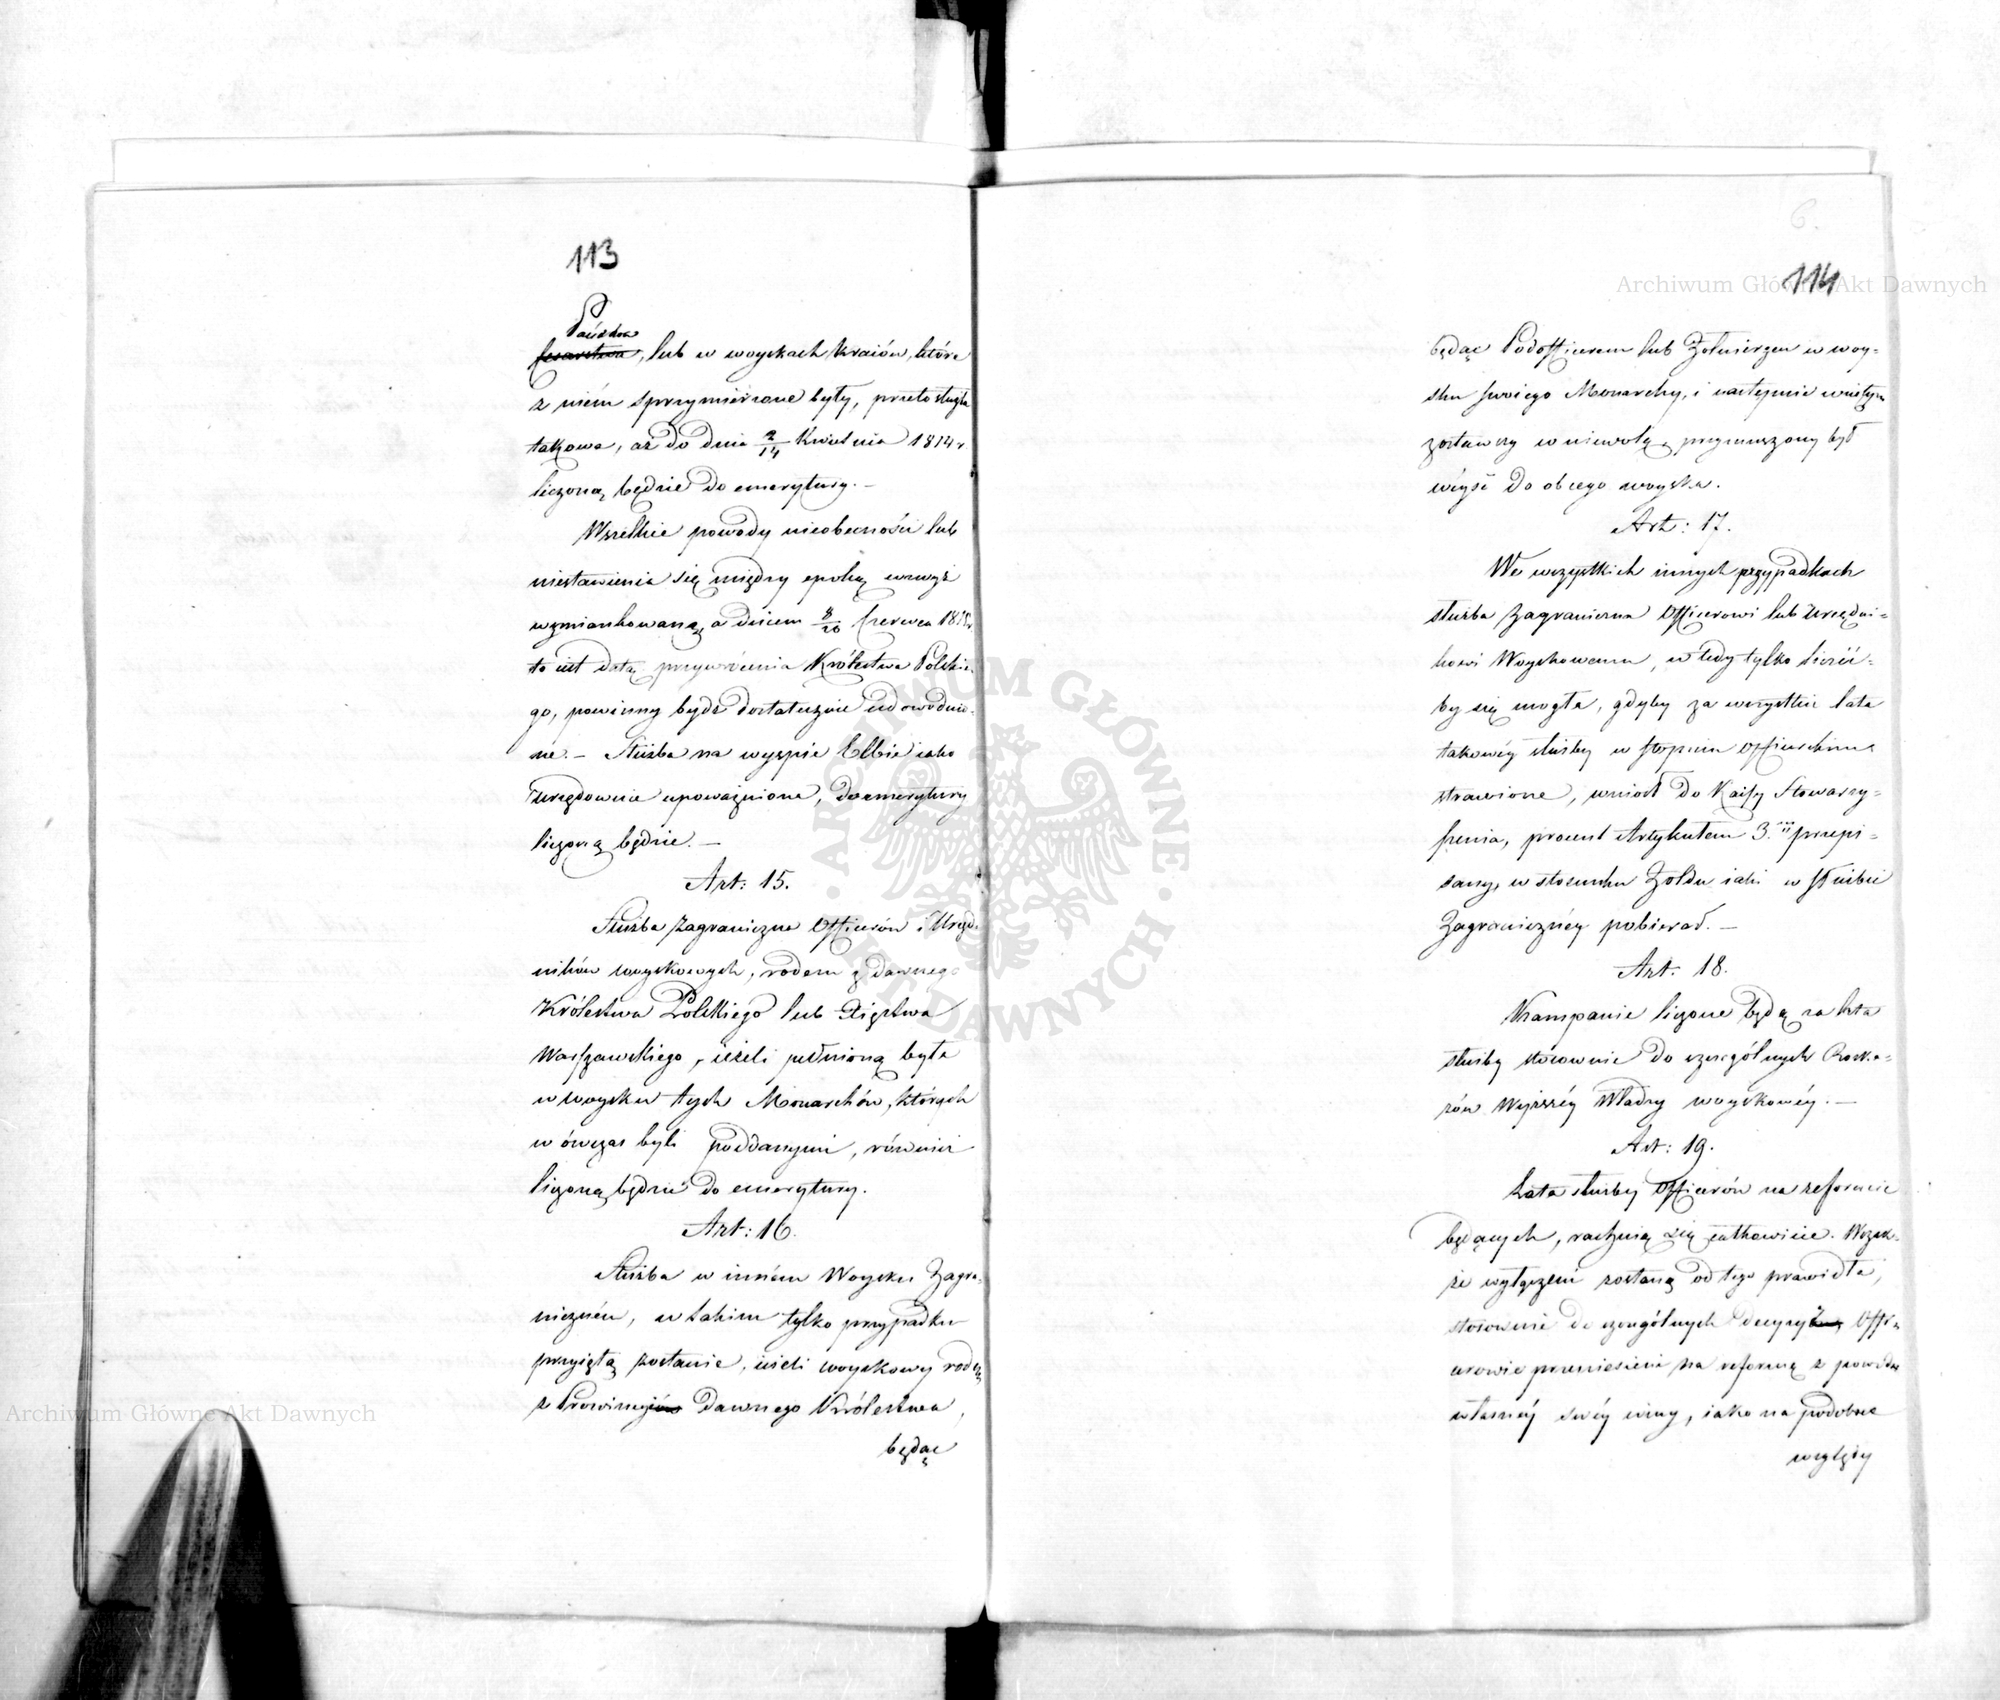 113
Państwa
Cesarstwa, lub w woyskach Kraiów, które
z niém sprzymierzone były, przeto służba
takowa, aż do dnia 2/14 Kwietnia 1814 r
liczoną będzie do emerytury. –
Wszelkie powody nieobecności lub
niestawienia się między epoką wzwyż
wzmiankowaną, a dniem 8/20 Czerwca 1815 r.
to iest datą przywrócenia Królestwa Polskie-
go, powinny bydź dostatecznie udowodnio-
ne. – Służba na wyspie Elbie iako
urzędownie upoważniona, do emerytury
liczoną będzie. –
Art: 15.
Służba zagraniczna Officerów i Urzęd-
ników woyskowych, rodem z dawnego
Królestwa Polskiego lub Xięstwa
Warszawskiego, ieżeli pełnioną była
w woysku tych Monarchów, których
wówczas byli poddanymi, również
liczoną będzie do emerytury.
Art: 16.
Służba w inném Woysku Zagra-
niczném, w takim tylko przypadku
przyiętą zostanie, ieżeli woyskowy rodem
z Prowincyiów Dawnego Królestwa,
będąc
6.
114
będąc Podofficerem lub Żołnierzem w woy-
sku swoiego Monarchy, i następnie wziętym
zostawszy w niewolę, przymuszony był
wéyść do obcego woyska.
Art: 17.
We wszystkich innych przypadkach
służba zagraniczna Officerowi lub Urzędni-
kowi Woyskowemu, wtedy tylko liczyć-
by się mogła, gdyby za wszystkie lata
takowéy służby w stopniu officerskim
strawione, wniósł do Kassy Stowarzy-
szenia, procent Artykułem 3.m przepi-
sany, w stosunku Żołdu iaki w służbie
Zagranicznéy pobierał. –
Art: 18.
Kampanie liczone będą za lata
służby stósownie do szczególnych Rozka-
zów Wyższéy Władzy woyskowéy. –
Art: 19.
Lata służby Officerów na reformie
będących, rachuią się całkowicie. Wszak-
że wyłączeni zostaną od tego prawidła,
stosownie do szczególnych decyzyi Offi-
cerowie przeniesieni na reformę z powodu
własnéy swéy winy, iako na podobne
względy
Archiwum Główne Akt Dawnych
Archiwum Główne Akt Dawnych
ARCHIWUM GŁÓWNE AKT DAWNYCH